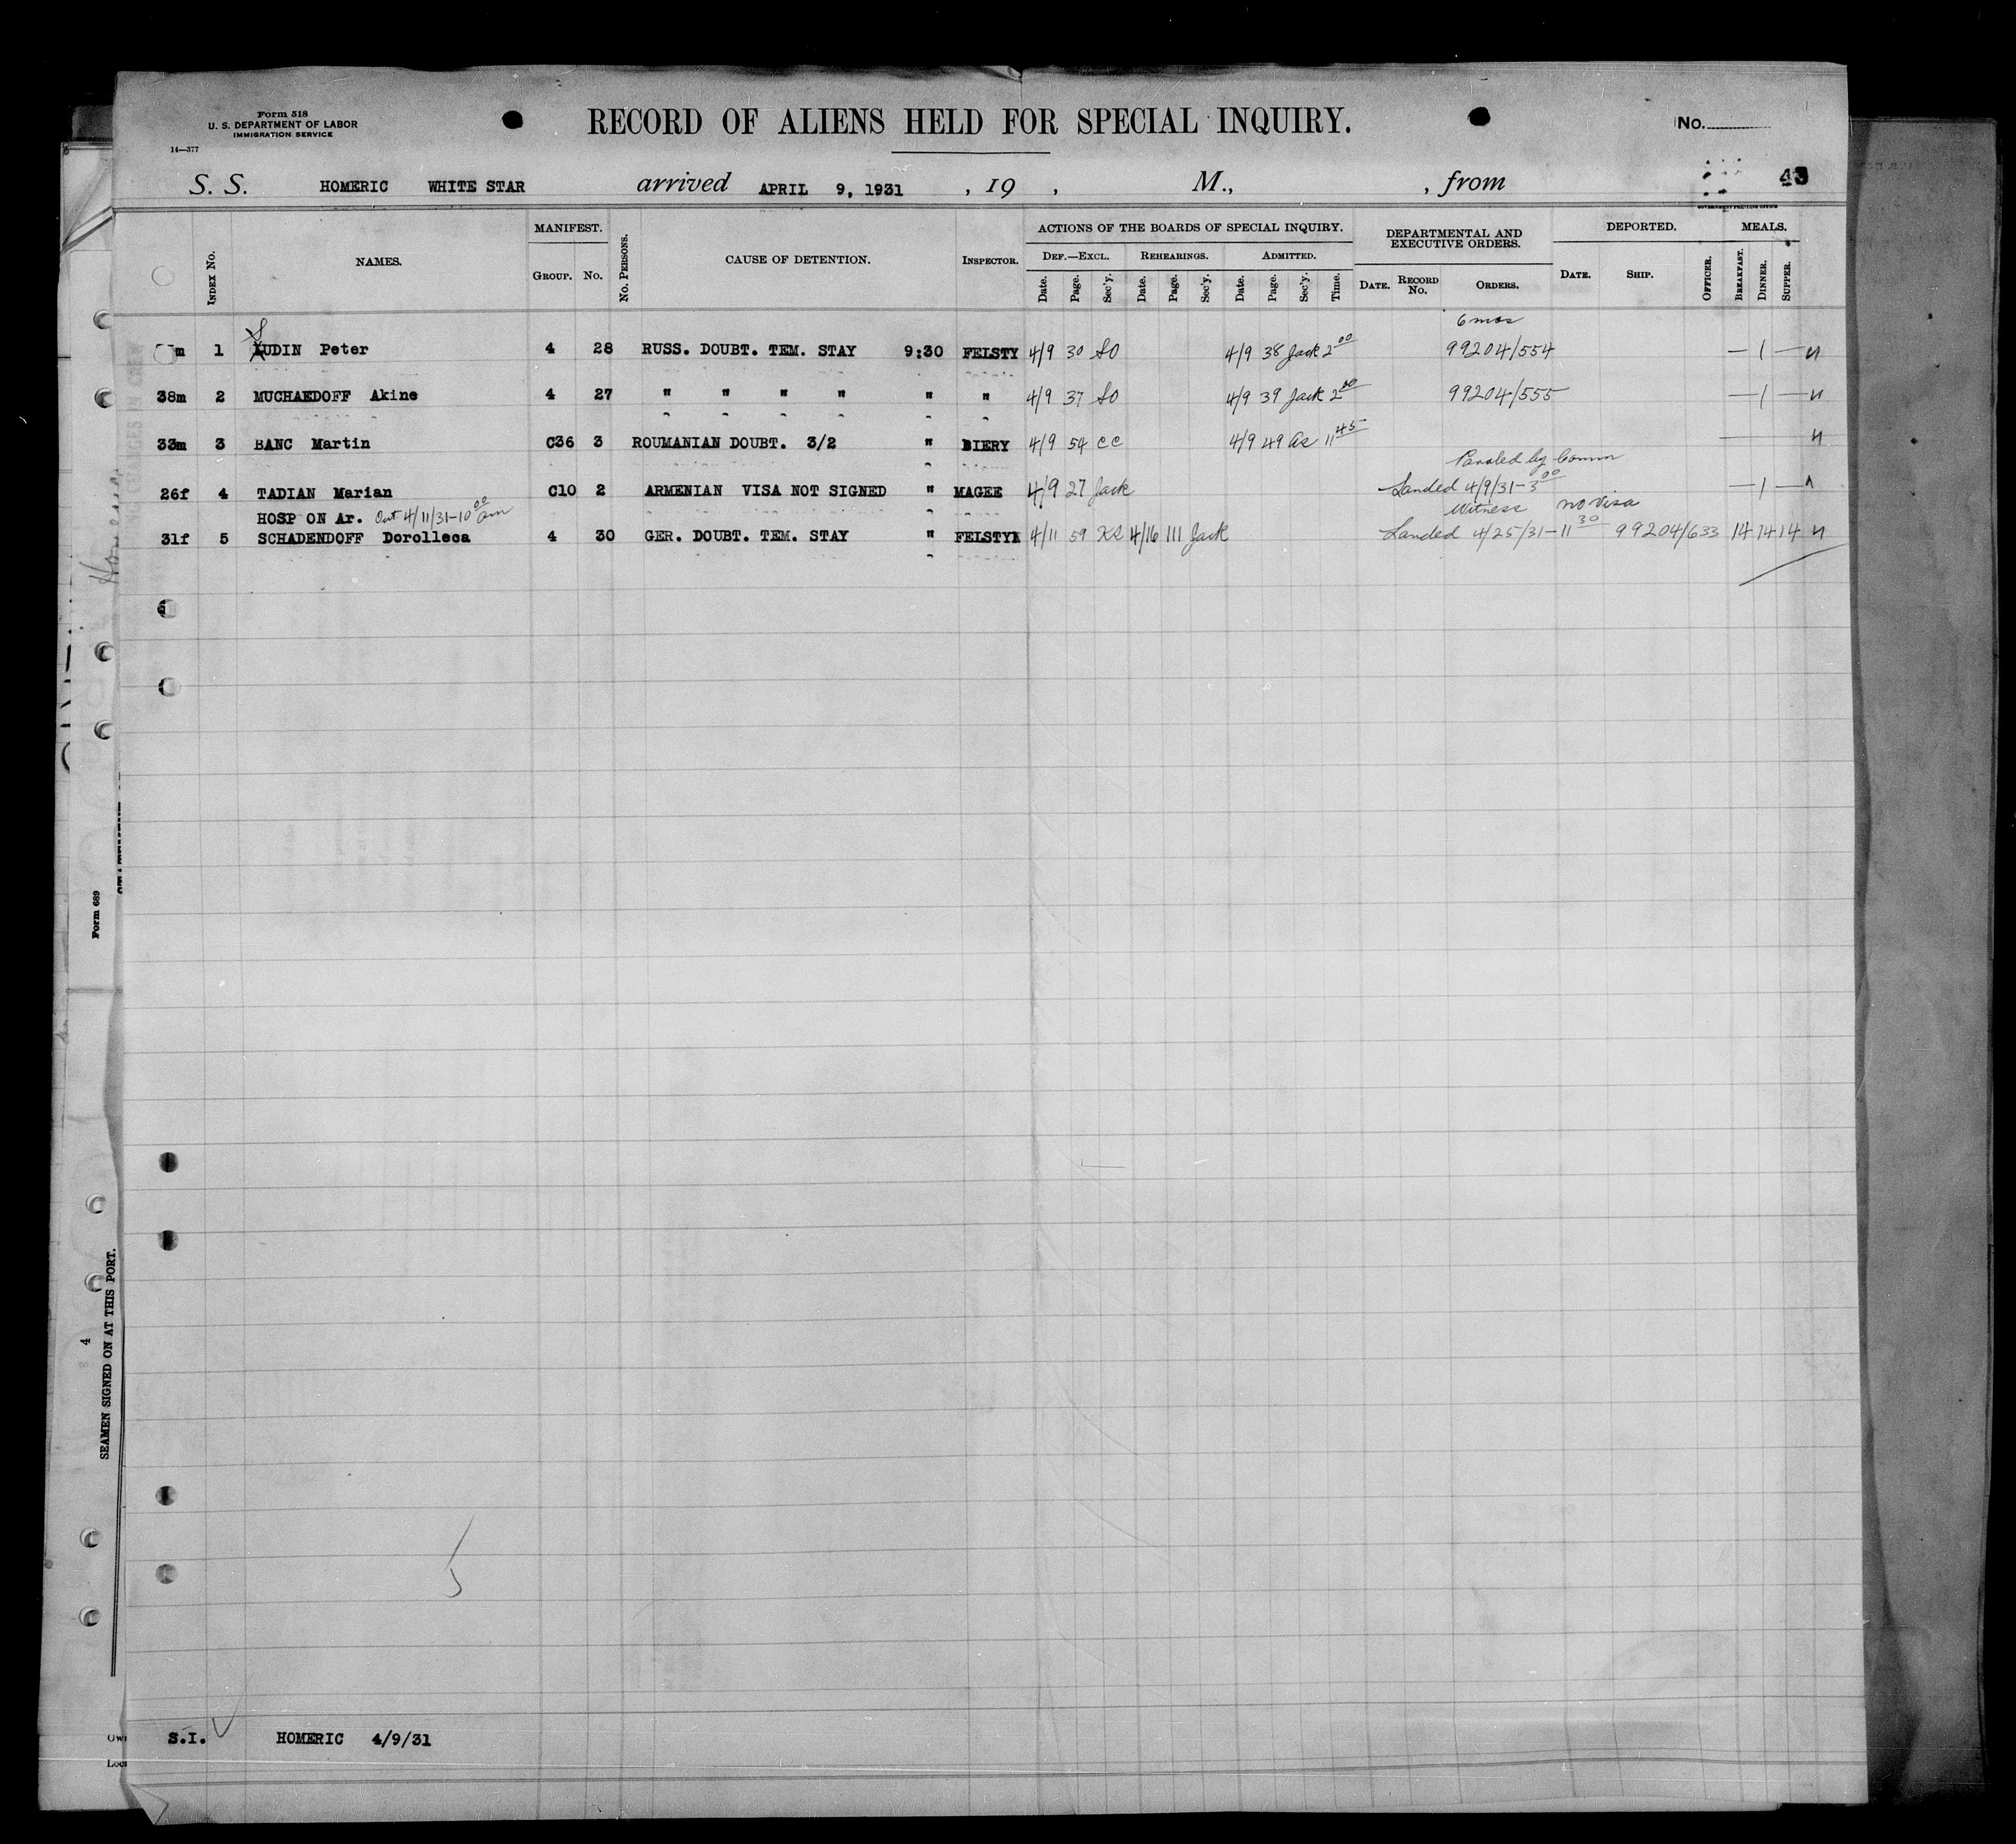 Form 518
U. S. DEPARTMENT OF LABOR
IMMIGRATION SERVICE
14—377
RECORD OF ALIENS HELD FOR SPECIAL INQUIRY.
No.
S. S. HOMERIC WHITE STAR arrived APRIL 9, 1931 , 19 , M., , from
43
GOVERNMENT PRINTING OFFICE
Index No. NAMES. MANIFEST. Group. No. No. Persons. CAUSE OF DETENTION. Inspector. ACTIONS OF THE BOARDS OF SPECIAL INQUIRY. Def.—Excl. Date. Page. Sec'y. Rehearings. Date. Page. Sec'y. Admitted. Date. Page. Sec'y. Time. DEPARTMENTAL AND EXECUTIVE ORDERS. Date. Record No. Orders. DEPORTED. Date. Ship. Officer. MEALS. Breakfast. Dinner. Supper.
S 6 mos
m 1 UDIN Peter 4 28 RUSS. DOUBT. TEM. STAY 9:30 FELSTY 4/9 30 SO 4/9 38 Jack 2 00 99204/554 — 1 —
38m 2 MUCHAEDOFF Akine 4 27 " " " " " " 4/9 37 SO 4/9 39 Jack 2 00 99204/555 — 1 —
33m 3 BANC Martin C36 3 ROUMANIAN DOUBT. 3/2 " BIERY 4/9 54 CC 4/9 49 as 11 45
Paroled by Comm
26f 4 TADIAN Marian C10 2 ARMENIAN VISA NOT SIGNED " MAGEE 4/9 27 Jack Landed 4/9/31-3 00 — 1 —
HOSP ON Ar. Out 4/11/31-10 00 am Witness no Visa
31f 5 SCHADENDOFF Dorolleca 4 30 GER. DOUBT. TEM. STAY " FELSTYN 4/11 59 4/16 111 Jack Landed 4/25/31-11 30 99204/633 14 14 14
5
S.I. HOMERIC 4/9/31
Form 689
4
SEAMEN SIGNED ON AT THIS PORT.